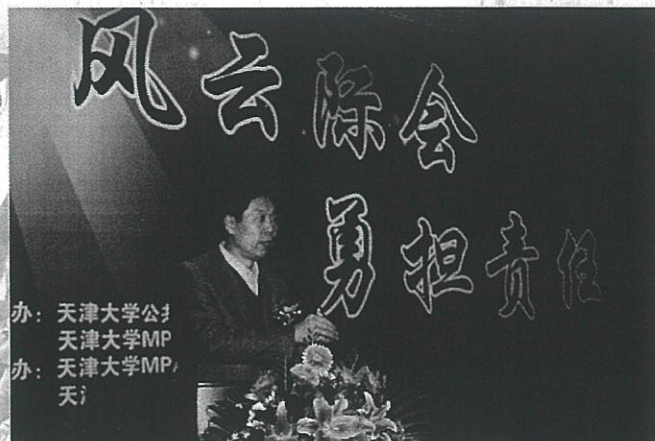 风云际会
勇担责任
办：天津大学公共
天津大学MP
办：天津大学MPA
天